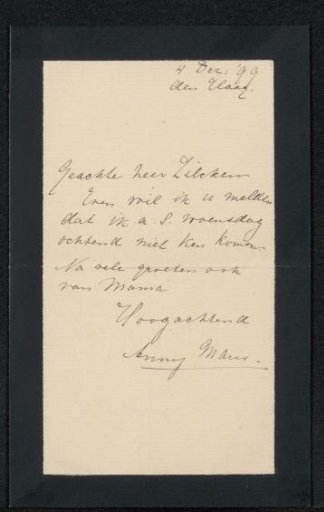 4 Dec. '99
den Haag.
Geachte heer Zilcken
Even wil ik u melden
dat ik a. s. woensdag
ochtend niet kan komen
Na vele groeten ook
van Mama
Hoogachtend
Anny Maris.